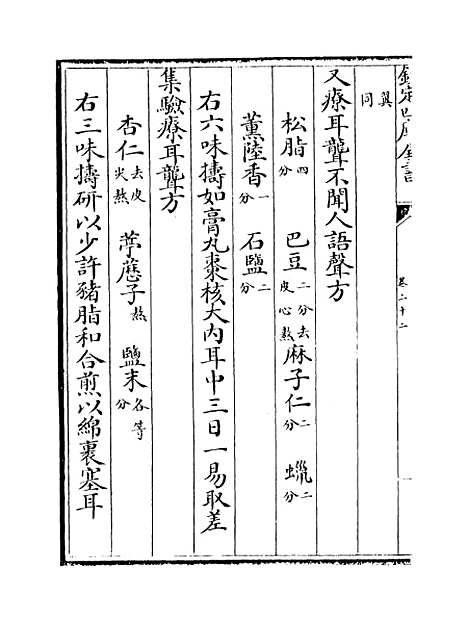 欽定四庫全書
卷二十二
翼同
又療耳聾不聞人語聲方
松脂四分 巴豆二分去皮心熬 麻子仁二分 蠟二分
薰陸香一分 石鹽二分
右六味擣如膏丸棗核大内耳中三日一易取差
集驗療耳聾方
杏仁去皮尖熬 葶藶子熬 鹽末各等分
右三味擣研以少許豬脂和合煎以綿裹塞耳